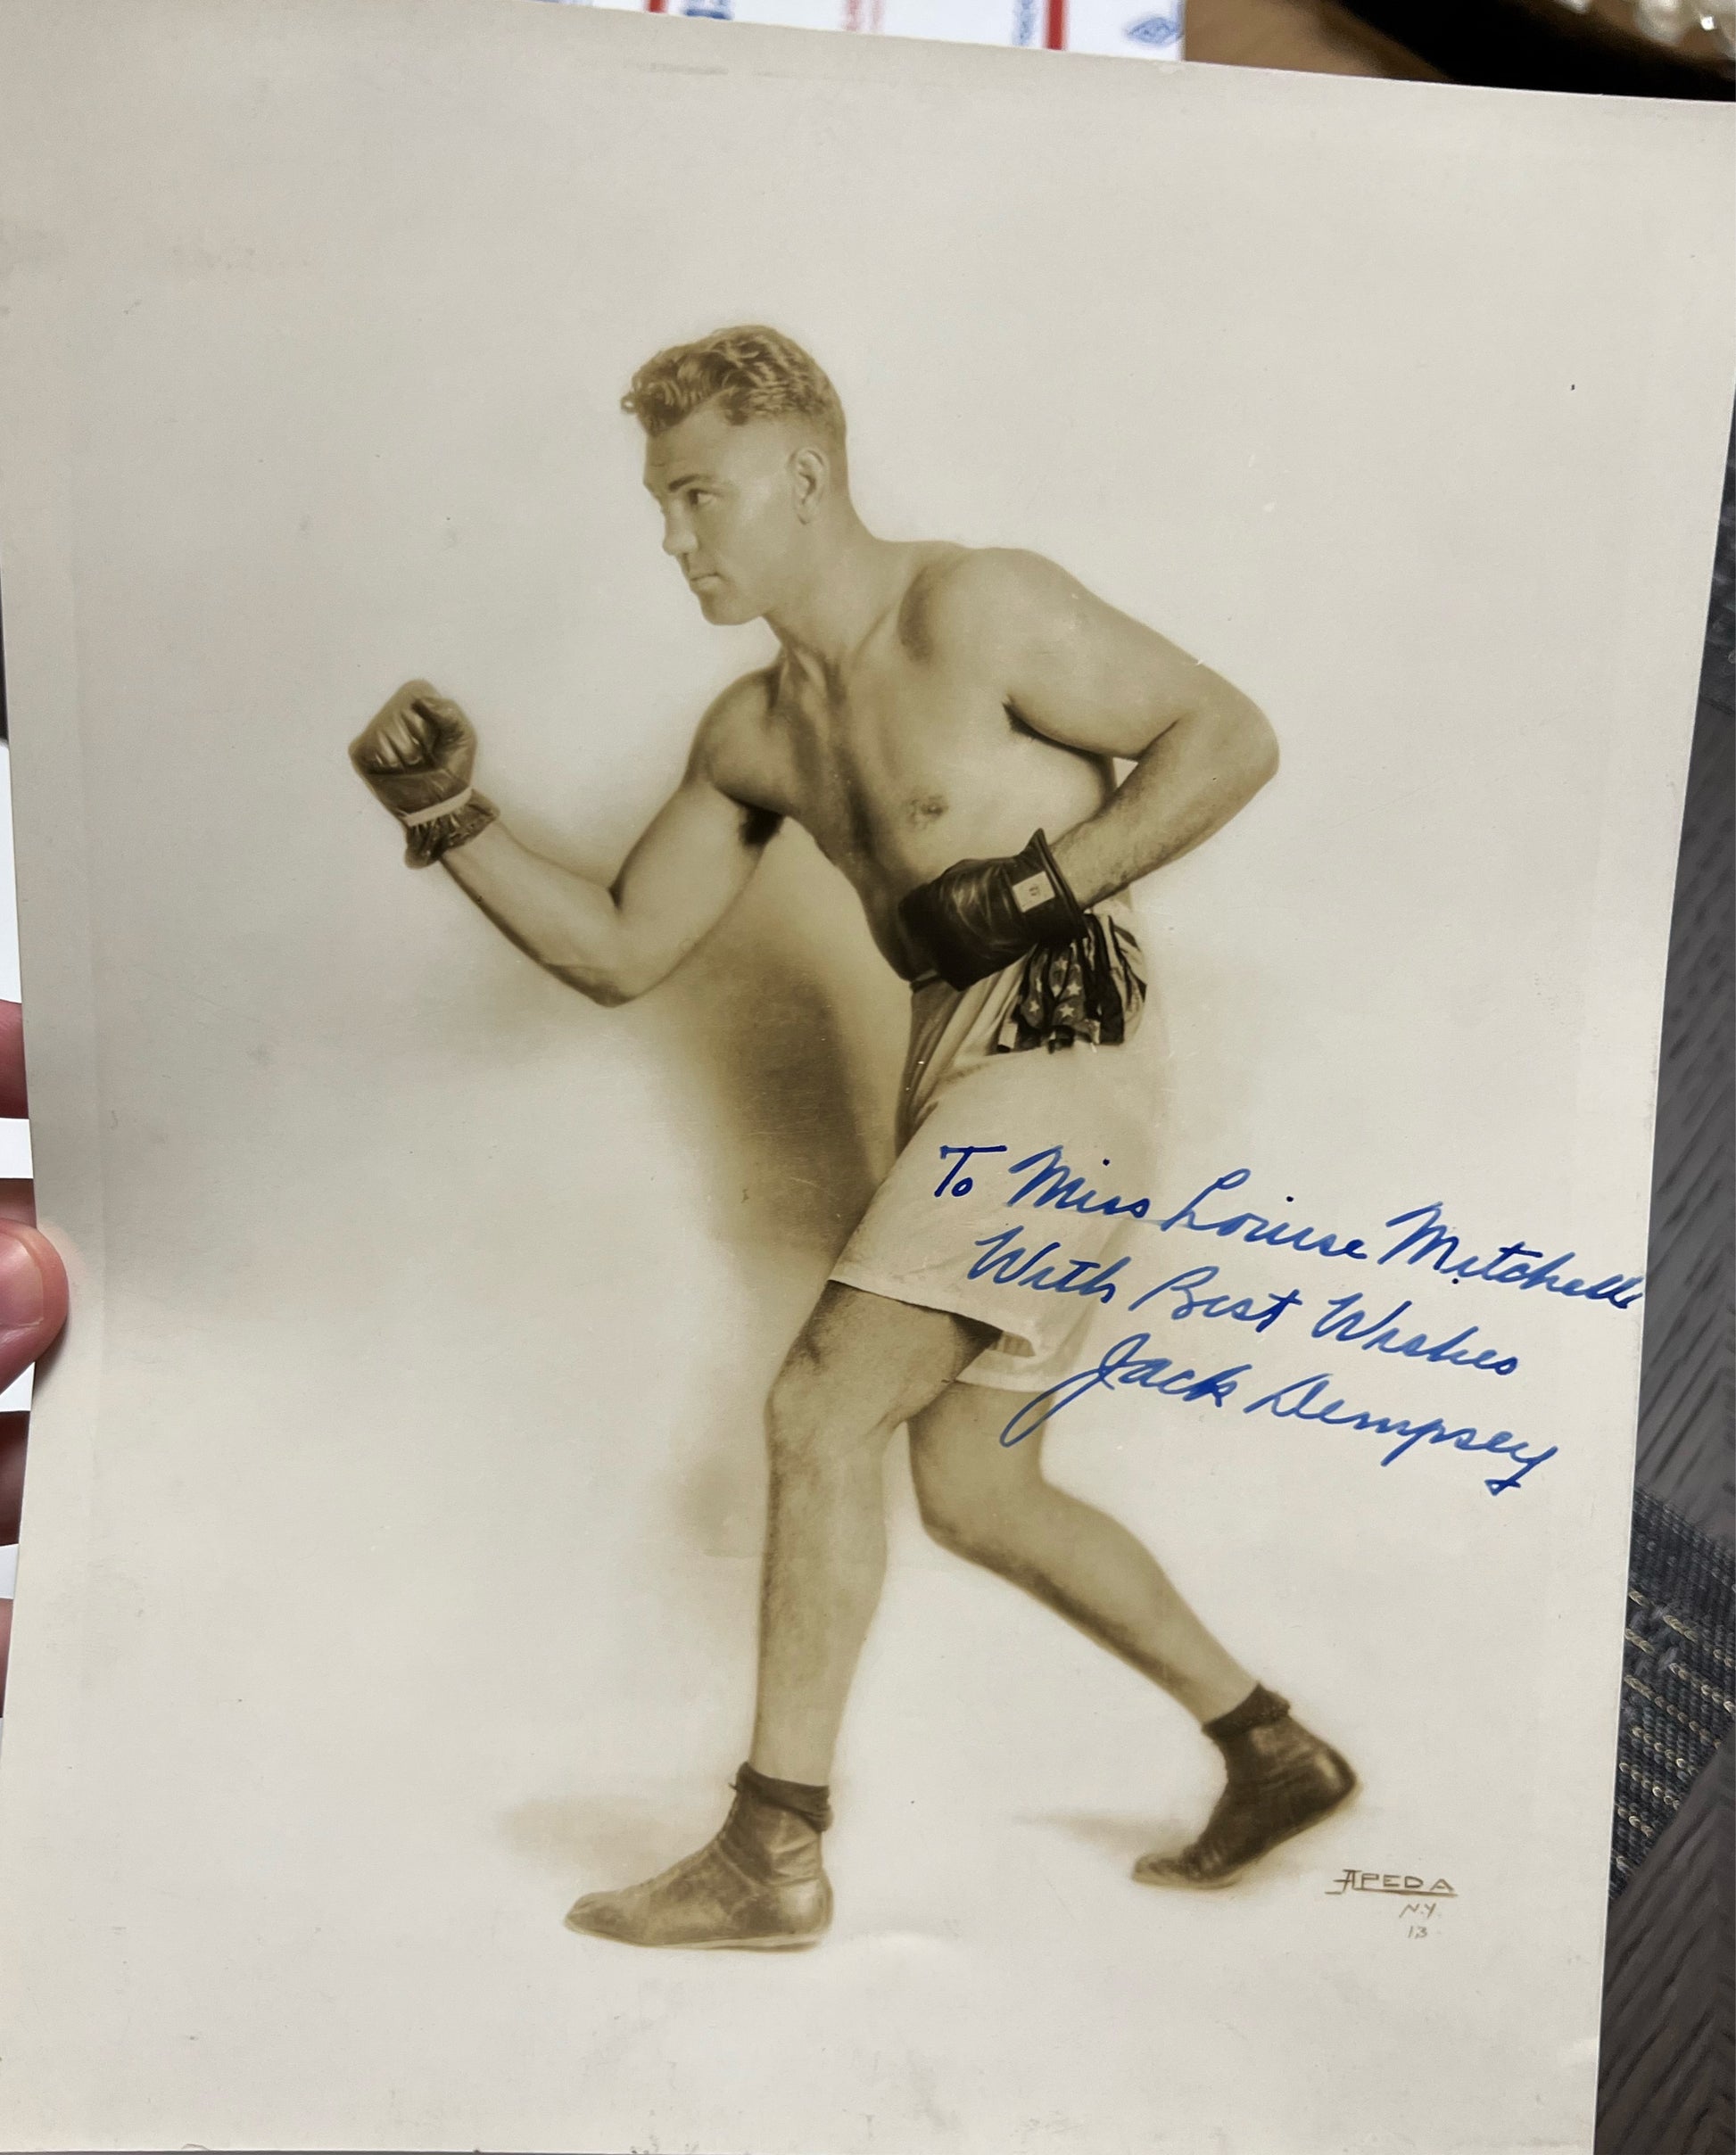 To Miss Louise Mitchell
With Best Wishes
Jack Dempsey
APEDA
N.Y.
13